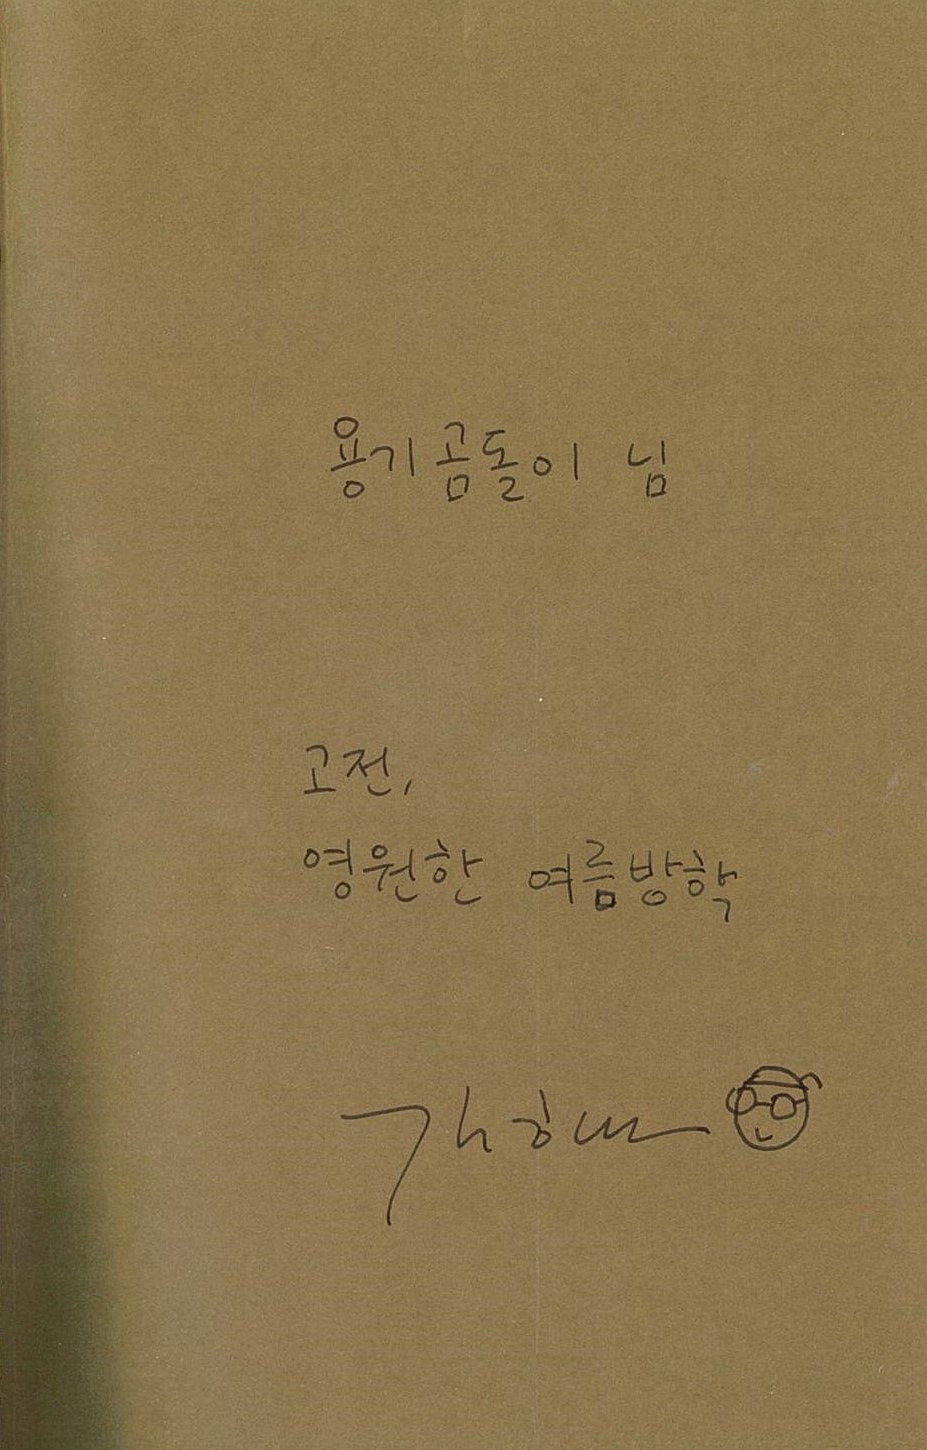 용기곰돌이 님
고전,
영원한 여름방학